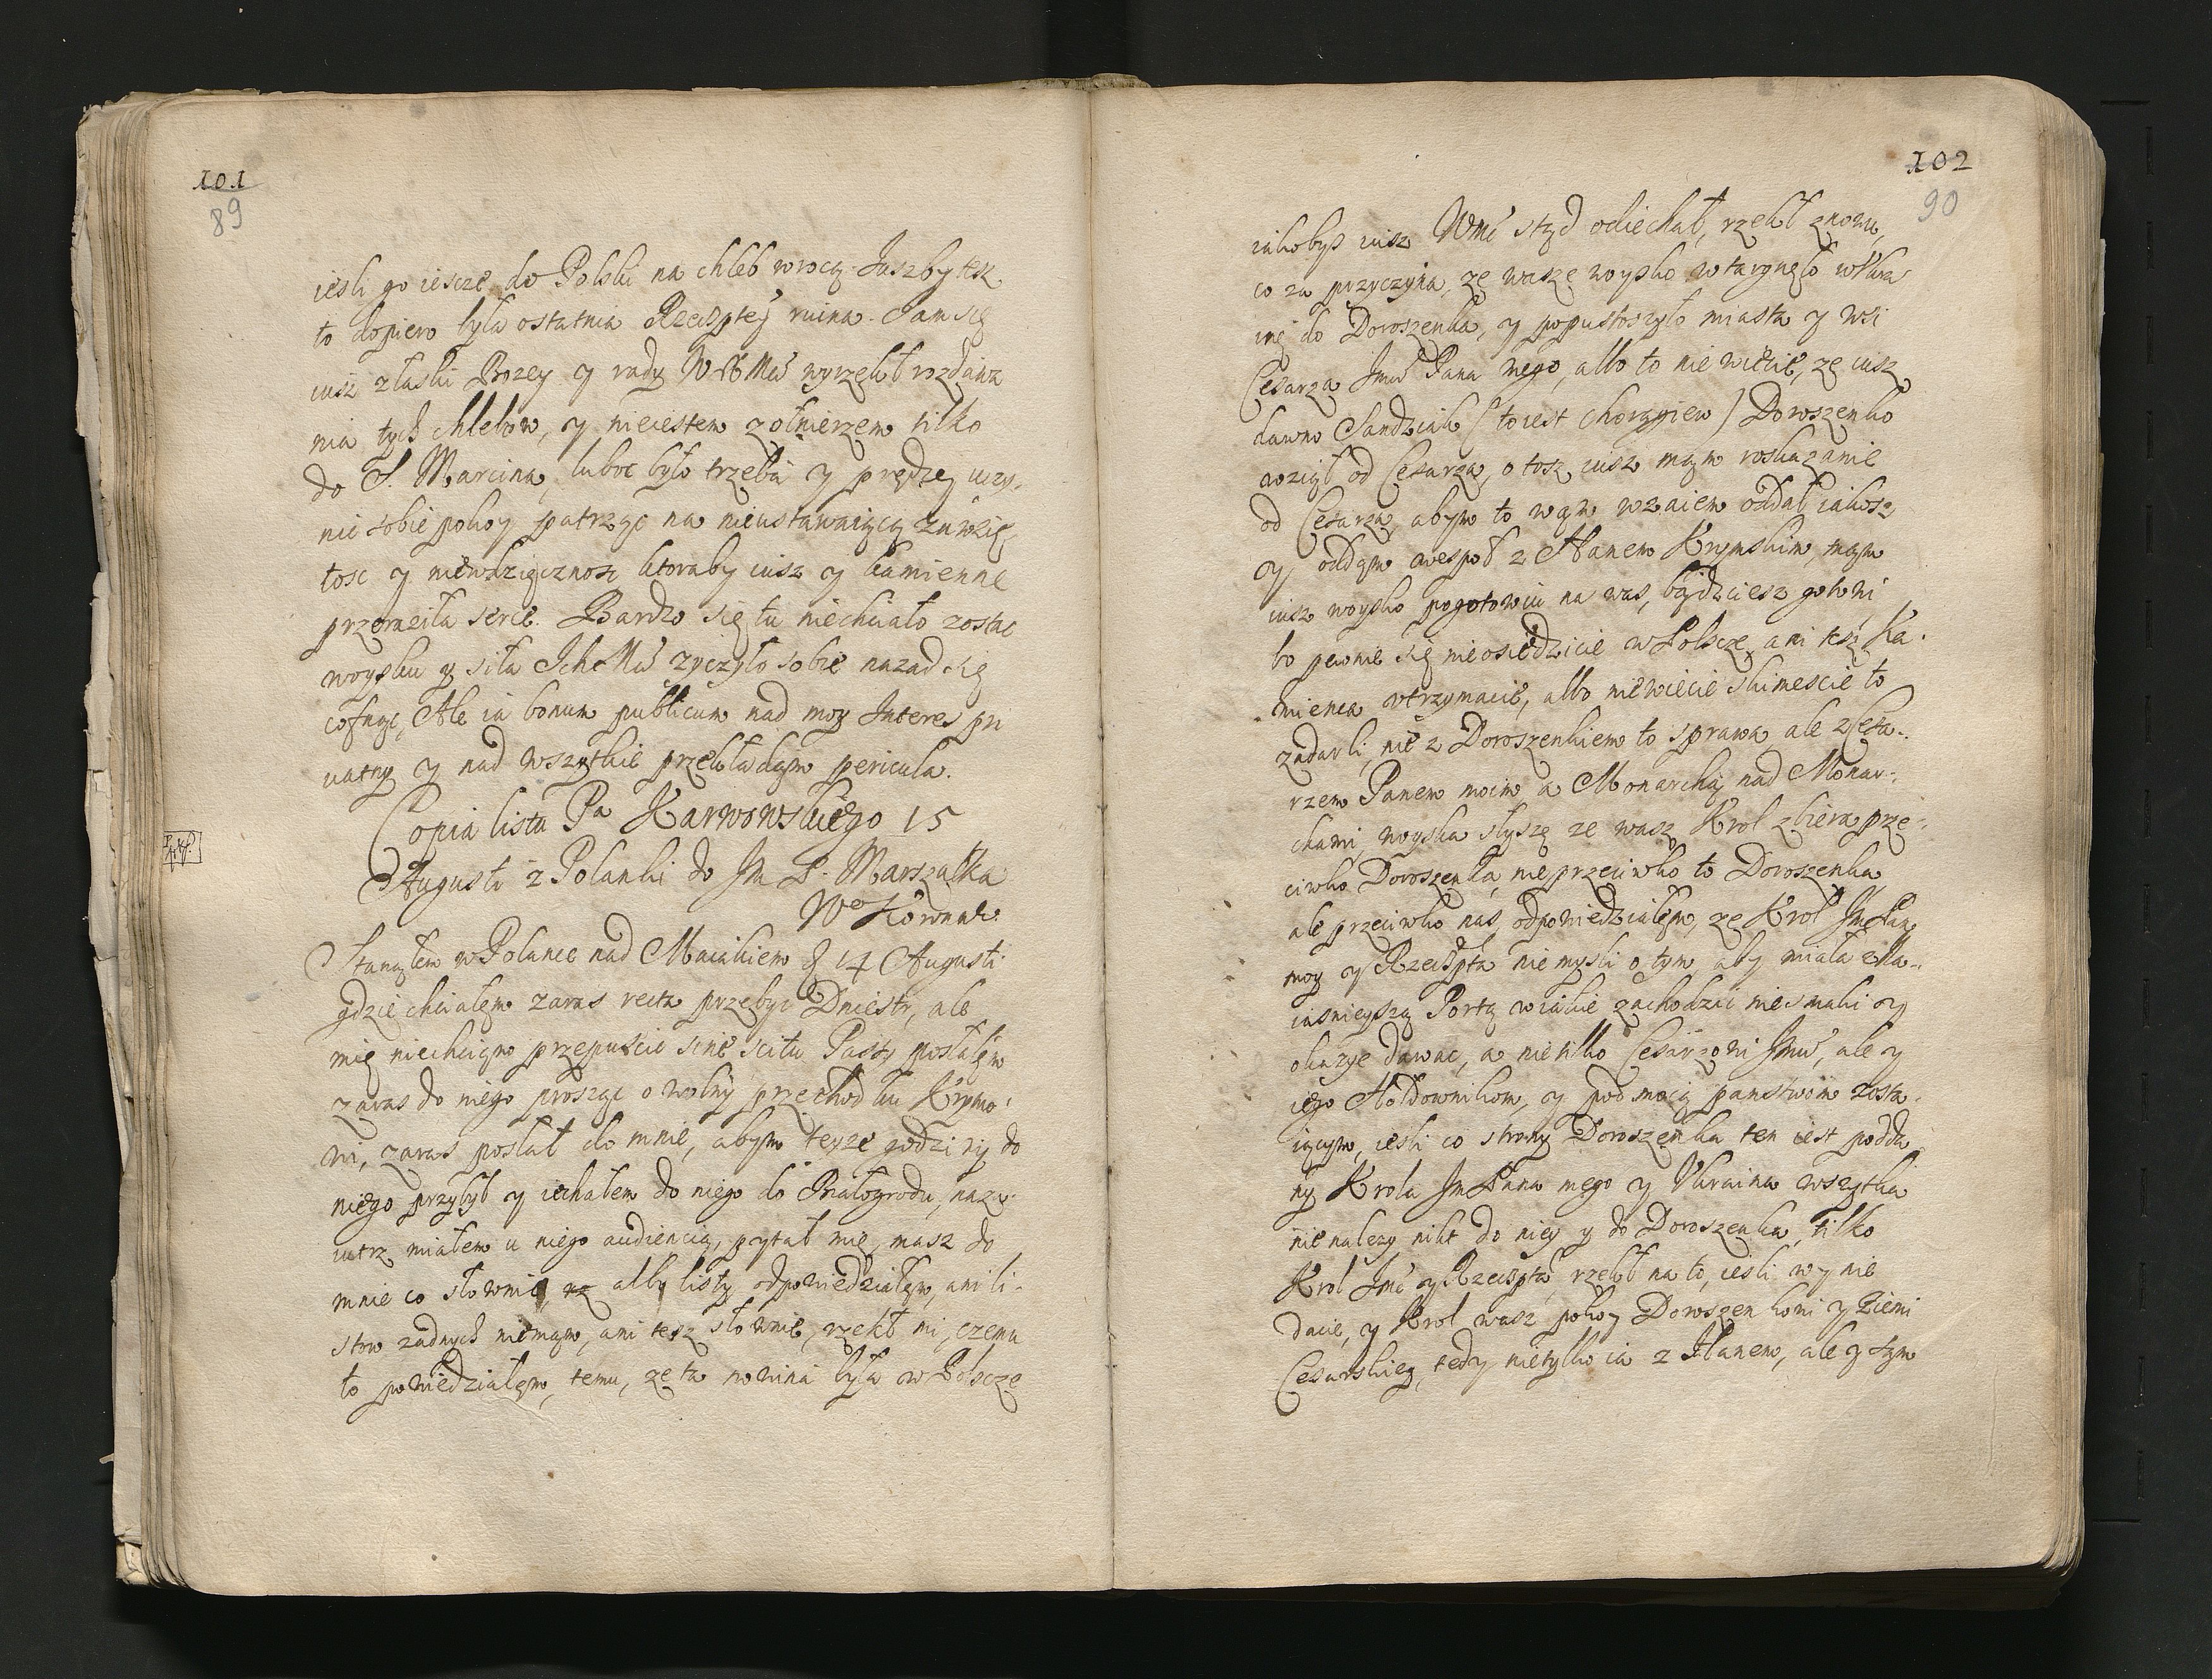 101
89
iesli go iescze do Polski na chleb wrocą. Juszby tesz
to dopiero była ostatnia Rzeczptey ruina. Jam się
iusz z łaski Bozey y rady WMMć wyrzekł rozdawa
nia tych chlebow, y nieiestem zołnierzem tilko
do S. Marcina, luboc było trzeba y prędzey uczy-
nic sobie pokoy patrząc na nieustawaiącą zawzię
tosc y niewdzięcznosc ktoraby iusz y kamienne
przeraziła serce. Bardzo się tu niechciało zostac
woysku y siła IchMMć zyczyło sobie nazad się
cofnąc, Ale ia bonum publicum nad moy Interes pri
vatny y nad wszytkie przekładąm pericula.
Copia listu Pa Karwowskiego 15
Augusti z Polanki do Jm P. Marszałka
Wo Koronne
Stanąłem w Polance nad Maiakiem d 14 Augusti
gdzie chciałem zaras recta przebyc Dniestr, ale
mię niechciano przepuscic sine scitu Paszy posłałem
zaras do niego prosząc o wolny przechod ku Krymo-
wi, zaras posłał do mnie, abym teyze godziny do
niego przybył y iechałem do niego do Białogrodu, naza-
iutrz miałem u niego audiencią, pytał mię, masz do
mnie co słownie, albo listy odpowiedziałem, ani li-
stow zadnych niemąm, ani tesz słownie, rzekł mi, czemu
to powiedziałem, temu, ze ta nowina była w Polscze
102
90
iakobys iusz Wmć stąd odiechał, rzekł znowu,
co za przyczyna, ze wasze woysko wtargnęło w Ukra
inę do Doroszenka, y popustoszyło miasta y wsi
Cesarza Jmć Pana mego, albo to nie wiecie, ze iusz
dawno Sandziak (to iest chorągiew) Doroszenko
wziął od Cesarza, otosz iusz mąm roskazanie
od Cesarza, abym to wąm wzaiem oddał iakosz
y oddąm wespoł z Hanem Krymskim, mąm
iusz woysko pogotowiu na was, bądzciesz gotowi
bo pewnie się nieosiedzicie w Polscze, ani tesz Ka-
mienca utrzymacie, albo niewiecie skimescie to
zadarli, nie z Doroszenkiem to sprawa ale z Cesa-
rzem Panem moim a Monarchą nad Monar-
chami, woyska słyszę ze wasz Krol zbiera prze-
ciwko Doroszenka, nie przeciwko to Doroszenka
ale przeciwko nas, odpowiedziałem, ze Krol Jmć Pan
moy y Rzeczpta nie mysli o tym, aby miała z Na-
iasnieyszą Portą w iakie zachodzic niesmaki y
okazye dawac, a nie tilko Cesarzowi Jmć, ale y
iego Hołdownikom, y pod mocą panstwom zosta-
iącym, iesli co strony Doroszenka ten iest podda
ny Krola Jm Pana mego y Ukraina wszytka
nie nalezy nikt do niey y do Doroszenka, tilko
Krol Jmć y Rzeczpta, rzekł na to, iesli wy nie
dacie, y Krol wasz pokoy Doroszenkowi y Ziemi
Cesarskiey, tedy nietylko ia z Hanem, ale y sam